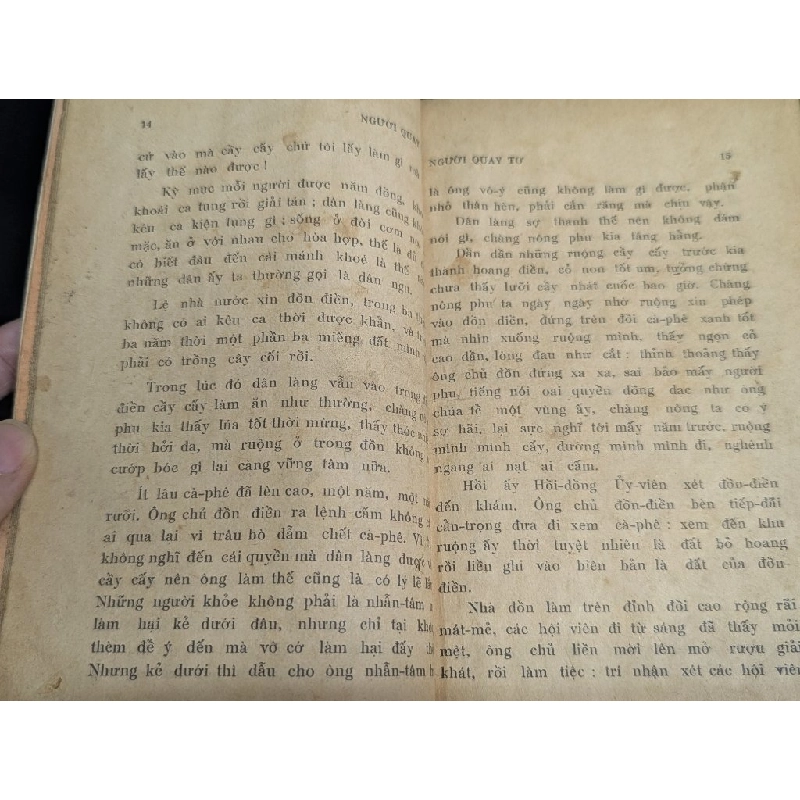 14
NGƯỜI QUAY
cứ vào mà cầy cấy chứ tôi lấy làm gì
lấy thế nào được!
Kỳ mức mỗi người được năm đồng,
khoái ca tung rồi giải tán; dân làng cũng
kêu ca kiện tung gì; sống ở đời cơm
mặc, ăn ở với nhau cho hòa hợp, thế là
có biết đâu đến cái mánh khoé là thế
những dân ấy ta thường gọi là dân ngu.
Lệ nhà nước xin đồn điền, trong ba
không có ai kêu ca thời được khẩn, và
ba năm thời một phần ba miếng đất mình
phải có trồng cây cối rồi.
Trong lúc đó dân làng vẫn vào trong
điền cầy cấy làm ăn như thường, chàng
phu kia thấy lúa tốt thời mừng, thấy thóc
thời hởi dạ, mà ruộng ở trong đồn không
cướp bóc gì lại càng vững tâm nữa.
Ít lâu cà-phê đã lên cao, một năm, một
rưỡi. Ông chủ đồn điền ra lệnh cấm không
ai qua lại vì trâu bò dẫm chết cà-phê. Vì
không nghĩ đến cái quyền mà dân làng được
cầy cấy nên ông làm thế cũng là có lý lẽ
Những người khỏe không phải là nhẫn-tâm
làm hại kẻ dưới đâu, nhưng chỉ tại
thèm để ý đến mà vô cớ làm hại đấy
Nhưng kẻ dưới thì dẫu cho ông nhẫn-tâm
NGƯỜI QUAY TƠ
15
là ông vô-ý cũng không làm gì được, phận
nhỏ thân hèn, phải cắn răng mà chịu vậy.
Dân làng sợ thanh thế nên không dám
nói gì, chàng nông phu kia tảng hằng.
Dần dần những ruộng cầy cấy trước kia
thành hoang điền, cỏ non tốt um, tưởng chừng
chưa thấy lưỡi cầy nhát cuốc bao giờ. Chàng
nông phu ta ngày ngày nhớ ruộng xin phép
vào đồn điền, đứng trên đồi cà-phê xanh tốt
mà nhìn xuống ruộng mình, thấy ngọn cỏ
cao dần, lòng đau như cắt: thỉnh thoảng thấy
ông chủ đồn đứng xa xa, sai bảo mấy người
phu, tiếng nói oai quyền dõng dạc như ông
chúa tể một vùng ấy, chàng nông ta có ý
sợ hãi, lại sực nghĩ tới mấy năm trước, ruộng
mình mình cấy, đường mình mình đi, nghênh
ngang ai nạt ai cấm.
Hồi ấy Hồi-đồng Ủy-viên xét đồn-điền
đến khám. Ông chủ đồn-điền bèn tiếp-đãi
cẩn-trọng đưa đi xem cà-phê: xem đến khu
ruộng ấy thời tuyệt nhiên là đất bỏ hoang
rồi liền ghi vào biên bản là đất của đồn-
điền.
Nhà đồn làm trên đỉnh đồi cao rộng rãi
mát-mẻ, các hội viên đi từ sáng đã thấy mỏi
mệt, ông chủ liền mời lên mở rượu giải
khát, rồi làm tiệc: trí nhận xét các hội viên